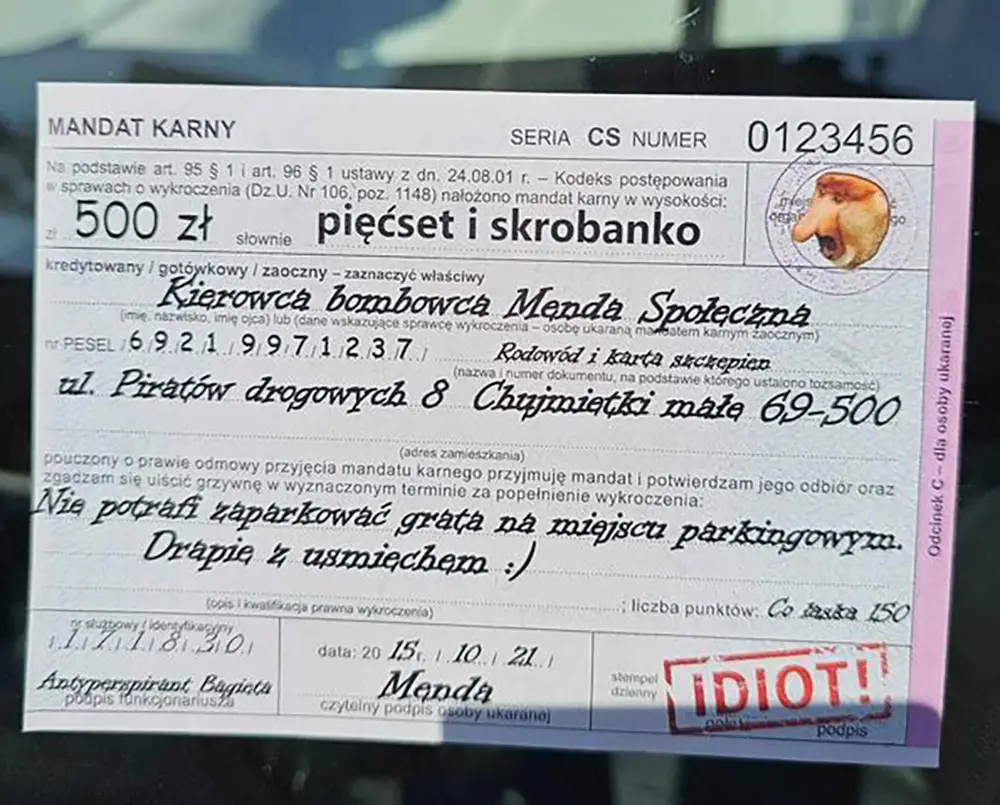 MANDAT KARNY SERIA CS NUMER 0123456
Na podstawie art. 95 § 1 i art. 96 § 1 ustawy z dn. 24.08.01 r. – Kodeks postępowania
w sprawach o wykroczenia (Dz.U. Nr 106, poz. 1148) nałożono mandat karny w wysokości:
zł 500 zł słownie pięćset i skrobanko
kredytowany / gotówkowy / zaoczny – zaznaczyć właściwy
Kierowca bombowca Menda Społęczna
(imię, nazwisko, imię ojca) lub (dane wskazujące sprawcę wykroczenia – osobę ukaraną mandatem karnym zaocznym)
nr PESEL / 6 / 9 / 2 / 1 / 9 / 9 / 7 / 1 / 2 / 3 / 7 / Rodowód i karta szczepien
(nazwa i numer dokumentu, na podstawie którego ustalono tożsamość)
ul. Piratów drogowych 8 Chujmiętki małę 69-500
(adres zamieszkania)
pouczony o prawie odmowy przyjęcia mandatu karnego przyjmuję mandat i potwierdzam jego odbiór oraz
zgadzam się uiścić grzywnę w wyznaczonym terminie za popełnienie wykroczenia:
Nie potrafi zaparkować grata na miejscu parkingowym.
Drapię z usmięchem :)
(opis i kwalifikacja prawna wykroczenia) ; liczba punktów: Co łaska 150
nr służbowy / identyfikacyjny
/ 1 / 7 / 1 / 8 / 3 / 0 /
Antyperspirant Bagieta
podpis funkcjonariusza
data: 20 15 / 10 / 21 /
Menda
czytelny podpis osoby ukaranej
stempel
dzienny
IDIOT!
podpis
Odcinek C – dla osoby ukaranej